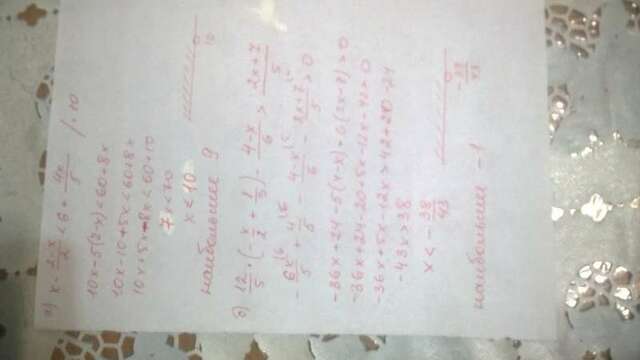 а) x - (2-x)/2 < 6 + 4x/5 /·10
10x-5(2-x)<60+8x
10x-10+5x<60+8x
10x+5x-8x<60+10
7x<70
x<10
10
наибольшее 9
12/5 · (-x/2 + 1/3) - (4-x)/6 > (2x+7)/5
-36x+24-5(4-x)-6(2x-7)>0
-36x+24-20+5x-12x-42>0
-36x+5x-12x>42+20-24
-43x>38
x<-38/43
-38/43
наибольшее -1